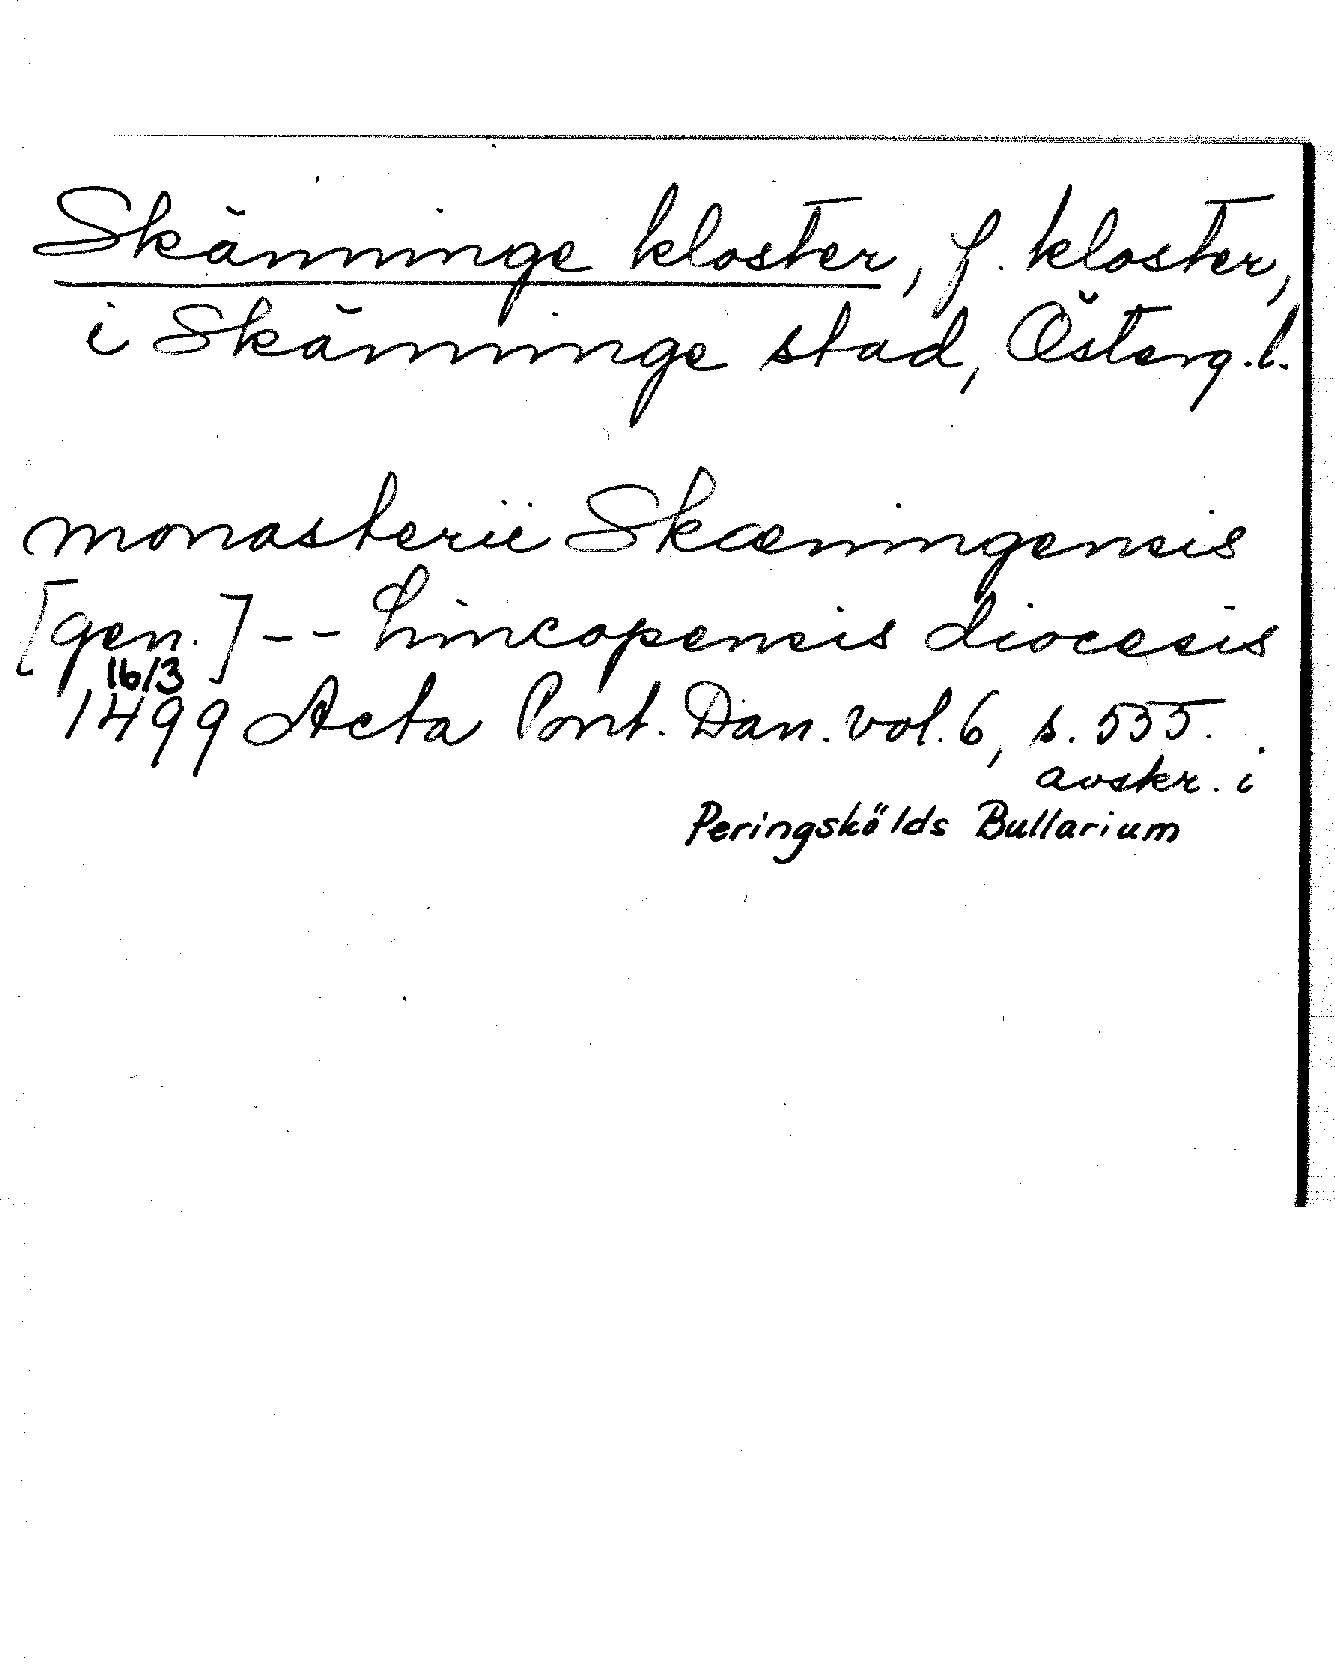 Skänninge kloster, f. kloster,
i Skänninge stad, Österg.l.
monasterii Skæningensis
[gen.] -- Lincopensis diocesis
16/3
1499 Acta Pont. Dan. vol. 6, s. 555.
avskr. i
Peringskölds Bullarium